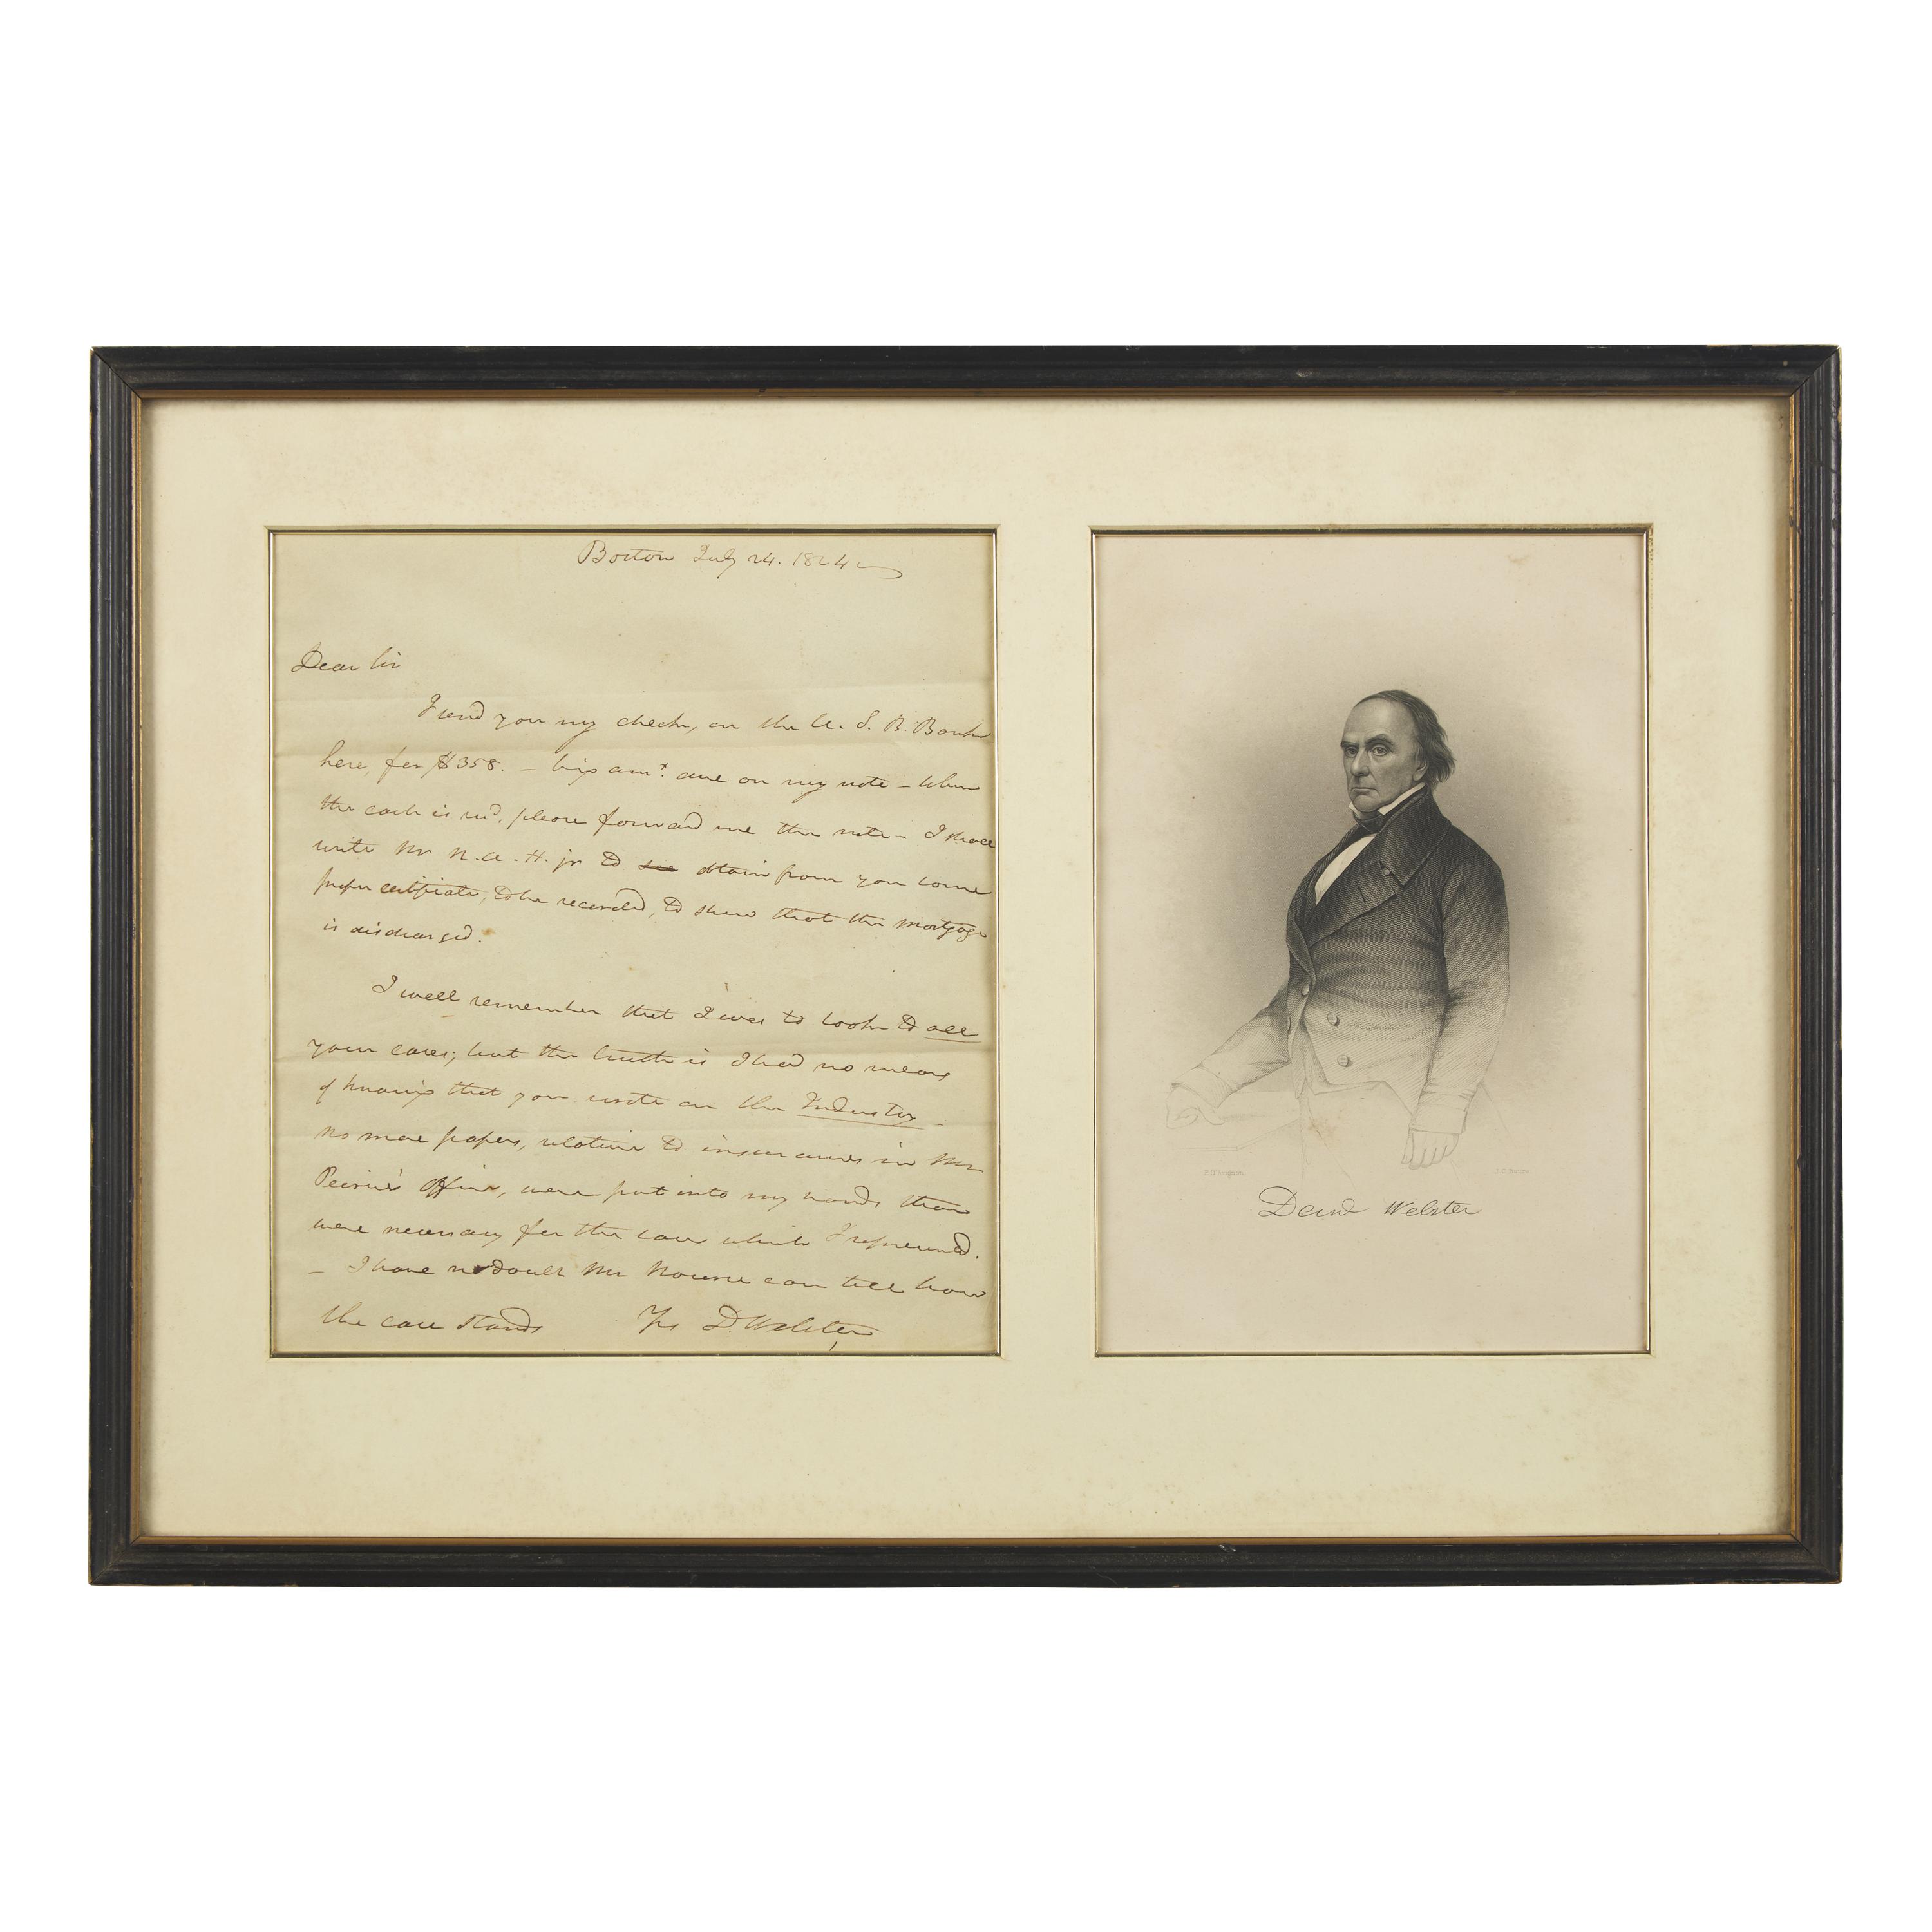 Boston July 24. 1824
Dear Sir
I send you my check, on the U. S. B. Bank
here, for $358. – being amt. due on my note – When
the cash is recd, please forward me the note – I shall
write Mr N. A. H. jr to see obtain from you some
proper certificate, to be recorded, to shew that the mortgage
is discharged.
I well remember that I was to look to all
your cases; but the truth is I had no means
of knowing that you wrote on the Industry.
No more papers, relative to insurances in Mr
Peirce's office, were put into my hands than
were necessary for the case which I represented.
– I have no doubt Mr Nourse can tell how
the case stands Yrs D. Webster
Danl Webster